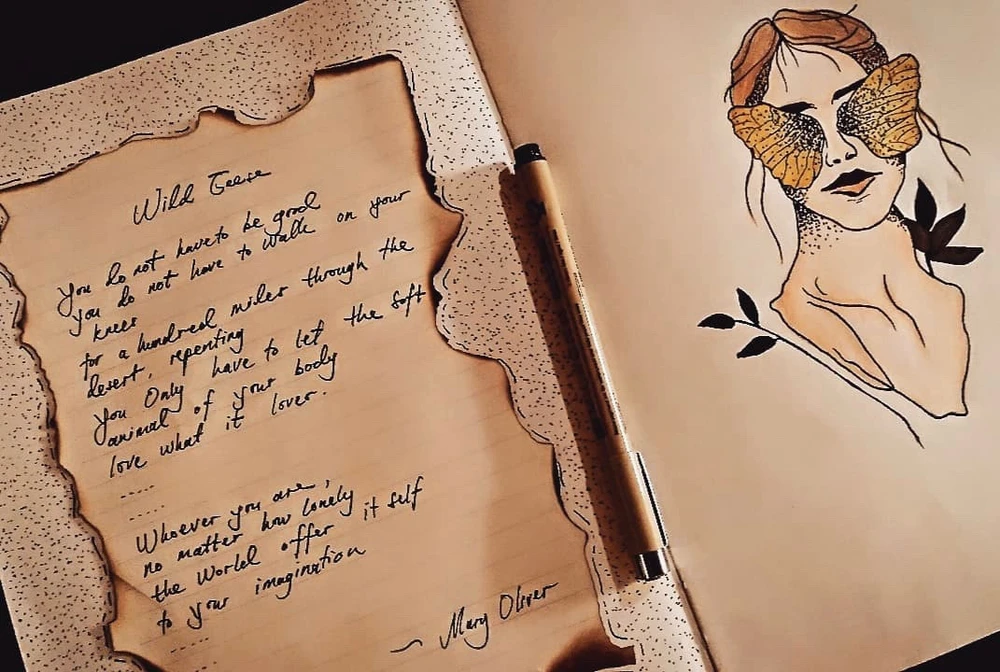 Wild Geese
You do not have to be good
you do not have to walk on your
knees
for a hundred miles through the
desert, repenting
you Only have to let the soft
animal of your body
love what it loves.
-----
Whoever you are,
no matter how lonely
the World offer it self
to your imagination
----
~ Mary Oliver